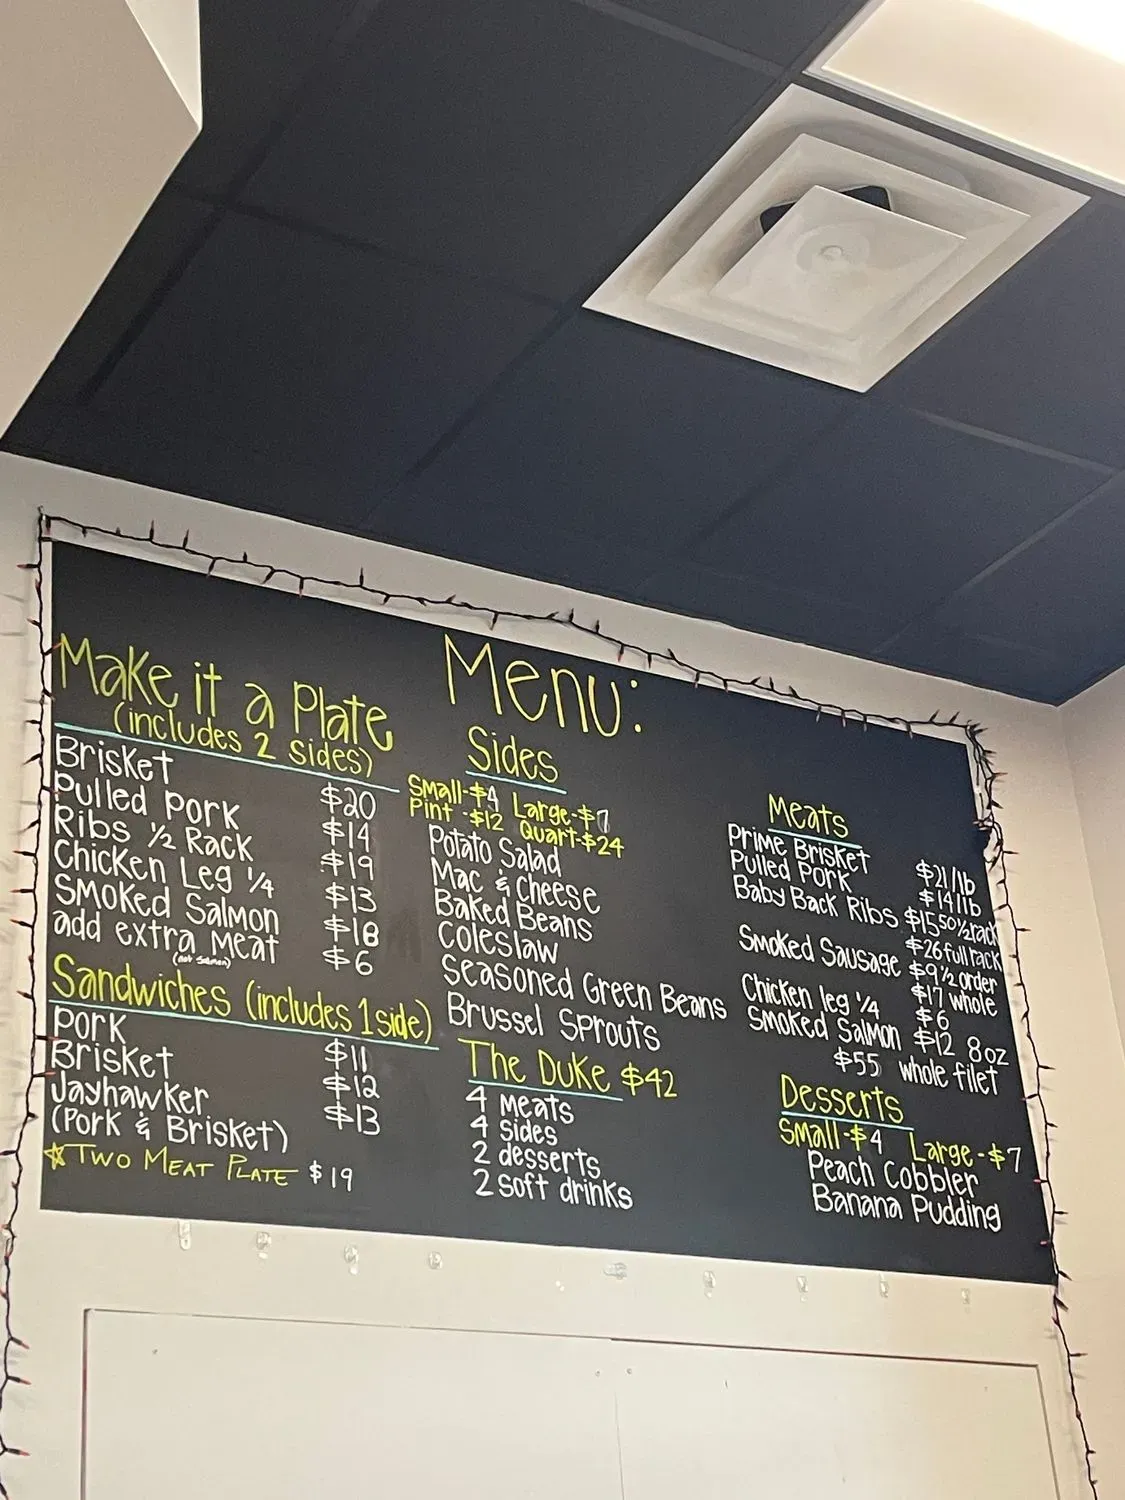 Menu:
Make it a Plate
(includes 2 sides)
Brisket $20
Pulled Pork $14
Ribs 1/2 Rack $19
Chicken Leg 1/4 $13
Smoked Salmon $18
add extra meat $6
(not salmon)
Sandwiches (includes 1 side)
Pork $11
Brisket $12
Jayhawker $13
(Pork & Brisket)
☆Two Meat Plate $19
Sides
Small-$4 Large-$7
Pint-$12 Quart-$24
Potato Salad
Mac & Cheese
Baked Beans
Coleslaw
Seasoned Green Beans
Brussel Sprouts
The Duke $42
4 meats
4 sides
2 desserts
2 soft drinks
Meats
Prime Brisket $21/lb
Pulled Pork $14/lb
Baby Back Ribs $15.50 1/2 rack
$26 full rack
Smoked Sausage $9 1/2 order
$17 whole
Chicken leg 1/4 $6
Smoked Salmon $12 8oz
$55 whole filet
Desserts
Small-$4 Large-$7
Peach Cobbler
Banana Pudding